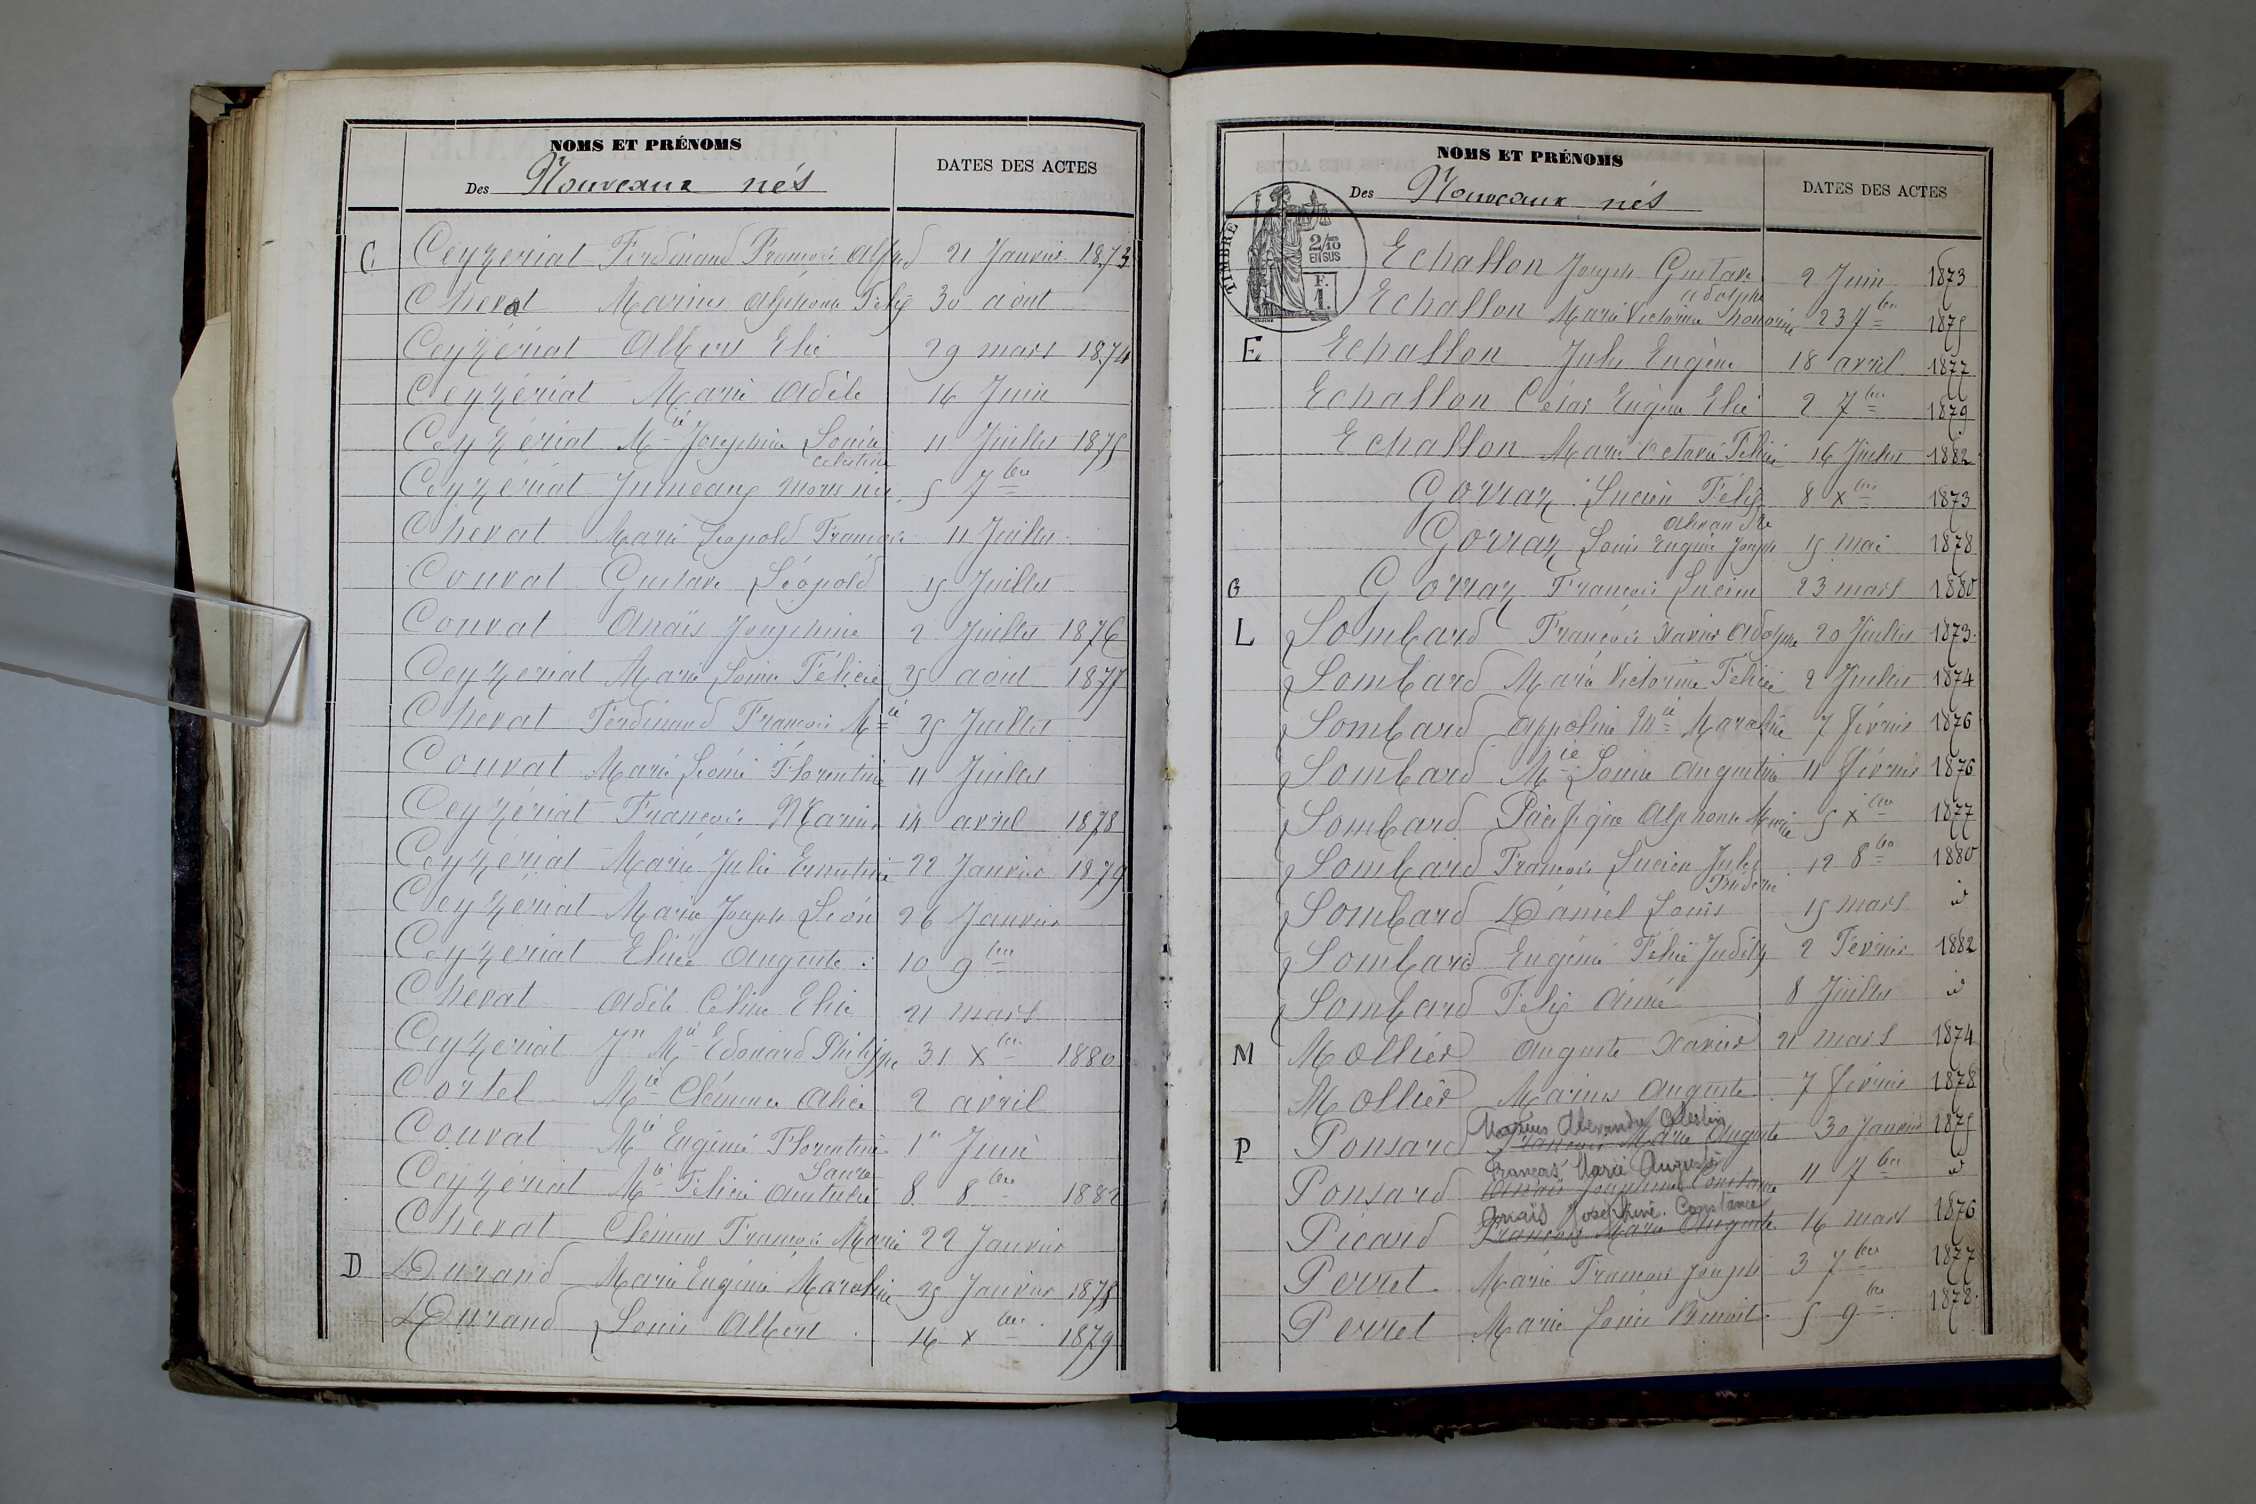 NOMS ET PRÉNOMS
Des Nouveaux nés
DATES DES ACTES
C. Ceyzeriat Ferdinand François Alfred 21 Janvier 1873
Chevat Marius Alphonse Félix 30 août
Ceyzériat Albert Elie 29 mars 1874
Ceyzériat Marie Adèle 16 Juin
Ceyzériat Mie Joséphine Louise 11 Juillet 1875
Celestine
Ceyzériat Jumeaux morts nés 5 7bre
Chevat Marie Léopold François 11 Juillet
Couvat Gustave Léopold 15 Juillet
Couvat Anaïs Joséphine 2 Juillet 1876
Ceyzeriat Marie Louise Félicie 25 août 1877
Chevat Ferdinand François Mie 25 Juillet
Couvat Marie Léonie Florentine 11 Juillet
Ceyzériat François Marius 14 avril 1878
Ceyzériat Marie Julie Ernestine 22 Janvier 1879
Ceyzériat Marie Joseph Léon 26 Janvier
Ceyzeriat Elisée Auguste 10 9bre
Chevat Adèle Céline Elie 21 mars
Ceyzeriat Jn Mie Edouard Philippe 31 Xbre 1880
Cortel Mie Clémence Alice 2 avril
Couvat Mie Eugénie Florentine 1er Juin
Laure
Ceyzériat Mie Félicie 8 8bre 1882
Chevat Clément François Marie 22 Janvier
D Durand Marie Eugénie Marceline 25 Janvier 1875
Durand Louis Albert 16 Xbre 1879
NOMS ET PRÉNOMS
Des Nouveaux nés
DATES DES ACTES
TIMBRE
2/10
EN SUS
F.
1.
Echallon Joseph Gustave 2 Juin 1873
adolphe
Echallon Marie Victorine honorine 23 7bre 1875
E. Echallon Jules Eugène 18 avril 1877
Echallon César Eugène Elie 2 7bre 1879
Echallon Marie Octavie Félicie 16 Juillet 1882
Gorraz Lucien Félix 8 Xbre 1873
Alexandre
Gorraz Louis Eugène Joseph 15 mai 1878
G Gorraz François Lucien 23 mars 1880
L Lombard François Xavier Adolphe 20 Juillet 1873
Lombard Marie Victorine Félicie 2 Juillet 1874
Lombard Appoline Mie Marceline 7 Février 1876
Lombard Mie Louise Augustine 11 Février 1876
Lombard Pacifique Alphonse 5 Xbre 1877
Lombard François Lucien Jules 12 8bre 1880
Lombard Daniel Louis 15 mars id
Lombard Eugénie Félicie Judith 2 Février 1882
Lombard Félix Aimé 8 Juillet id
M Mollier Auguste Xavier 21 mars 1874
Mollier Marius Auguste 7 Février 1878
Marius Alexandre Célestin
P Ponsard François Marie Auguste 30 Janvier 1875
François Marie Auguste
Ponsard Anaïs Joséphine Constance 11 7bre id
Anaïs Joséphine Constance
Picard François Marie Auguste 16 mars 1876
Perret Marie François Joseph 3 7bre 1877
Perret Marie Louis Benoit 5 9bre 1878